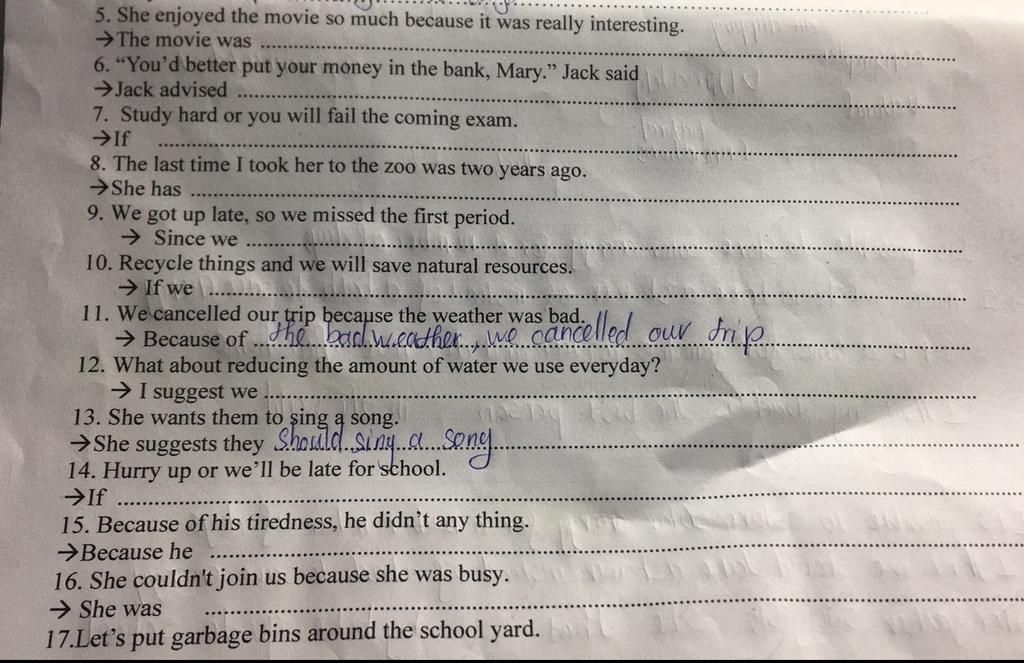 5. She enjoyed the movie so much because it was really interesting.
→The movie was ........................................
6. “You’d better put your money in the bank, Mary.” Jack said
→Jack advised ........................................
7. Study hard or you will fail the coming exam.
→If ........................................
8. The last time I took her to the zoo was two years ago.
→She has ........................................
9. We got up late, so we missed the first period.
→ Since we ........................................
10. Recycle things and we will save natural resources.
→ If we ........................................
11. We cancelled our trip because the weather was bad.
→ Because of the bad weather, we cancelled our trip
12. What about reducing the amount of water we use everyday?
→ I suggest we ........................................
13. She wants them to sing a song.
→She suggests they should sing a song
14. Hurry up or we’ll be late for school.
→If ........................................
15. Because of his tiredness, he didn’t any thing.
→Because he ........................................
16. She couldn't join us because she was busy.
→ She was ........................................
17.Let’s put garbage bins around the school yard.